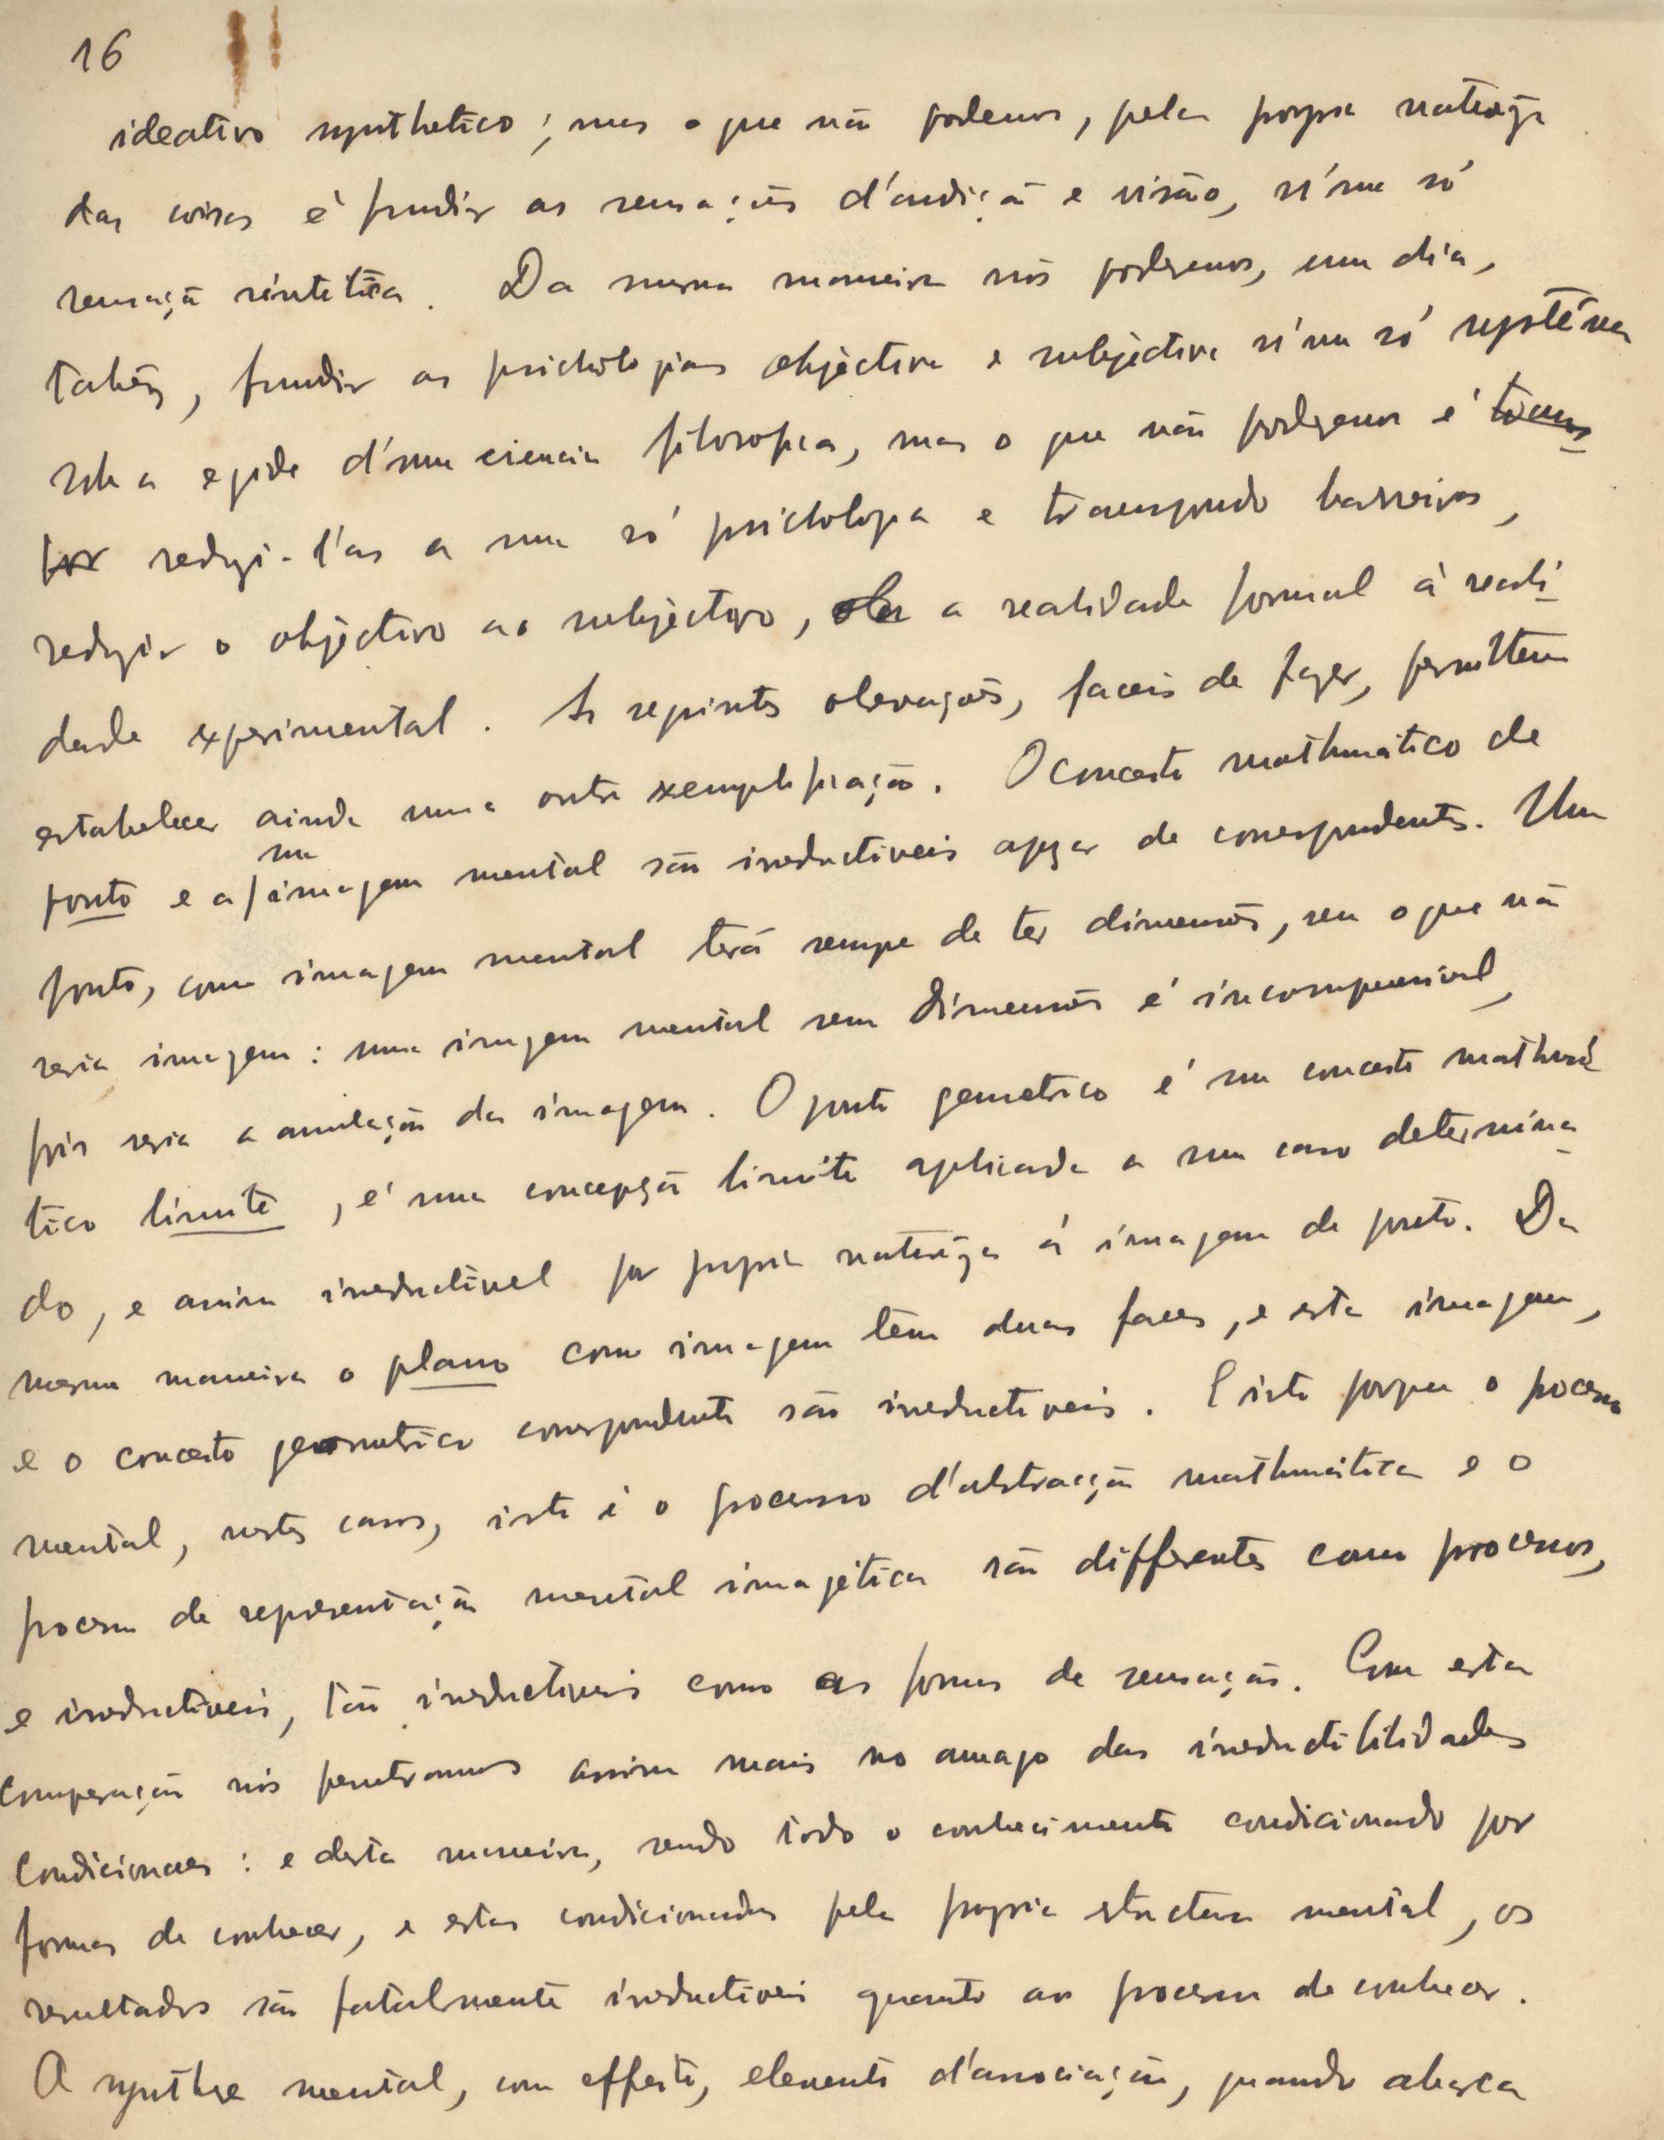 16
ideativo synthetico; mas o que não podemos, pela propria natureza
das coisas é fundir as sensações d'audição e visão, n'uma só
sensação sintetica. Da mesma maneira nós poderemos, um dia,
tabẽ, fundir as psichologias objéctiva e subjéctiva n'um só systéma
sob a egide d'uma ciencia filosofica, mas o que não poderemos é trans-
por reduzi-l'as a uma só psichologia e transpondo barreiras,
reduzir o objéctivo ao subjéctivo, a realidade formal á reali-
dade experimental. As seguintes observações, faceis de fazer, permittem
estabelecer ainda uma outra exemplificação. O conceito mathmático de
ponto e a sua imagem mental são irreductiveis apezar de correspondentes. Um
ponto, como imagem mental terá sempre de ter dimensões, sem o que não
seria imagem: uma imagem mental sem dimensões é incompreensivel,
pois seria a anulação da imagem. O ponto geometrico é um conceito mathmá-
tico límite, é uma concepção limite aplicada a um caso determina-
do, e assim irreductivel por propria natureza á imagem de ponto. Da
mesma maneira o plano como imagem tem duas faces, e esta imagem,
e o conceito geometrico correspondente são irreductiveis. E isto porque o processo
mental, nestes casos, isto é o processo d'abstracção mathmática e o
processo de representação mental imagética são differentes como processos,
e irreductiveis, tão irreductiveis como as formas de sensação. Com esta
comparação nós penetramos assim mais no amago das irreductibilidades
condicionaes: e desta maneira, sendo todo o conhecimento condicionado por
formas de conhecer, e estas condicionadas pela propria structura mental, os
resultados são fatalmente irreductiveis quanto ao processo de conhecer.
A synthese mental, com effeito, elemento d'associação, quando abarca